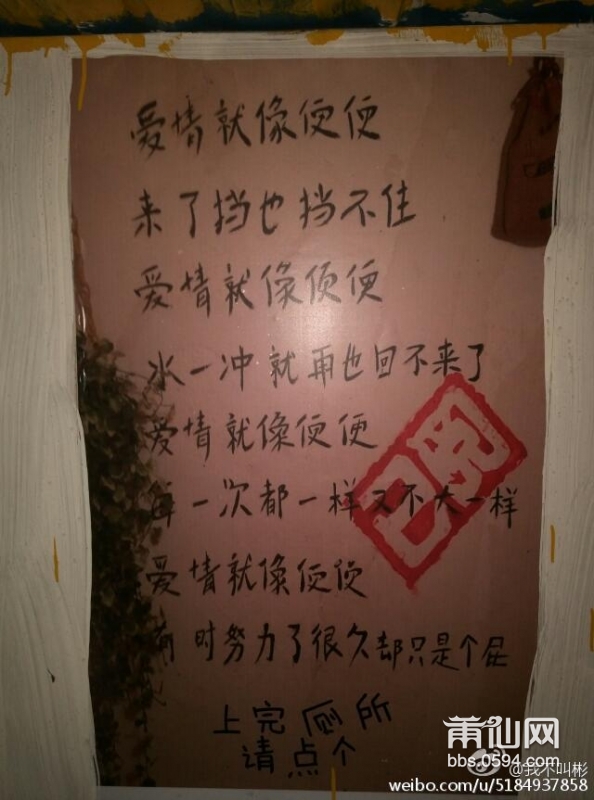 爱情就像便便
来了挡也挡不住
爱情就像便便
水一冲就再也回不来了
爱情就像便便
每一次都一样又不大一样
爱情就像便便
有时努力了很久却只是个屁
上完厕所
请点个
莆仙网
bbs.0594.com
@我不叫彬
weibo.com/u/5184937858